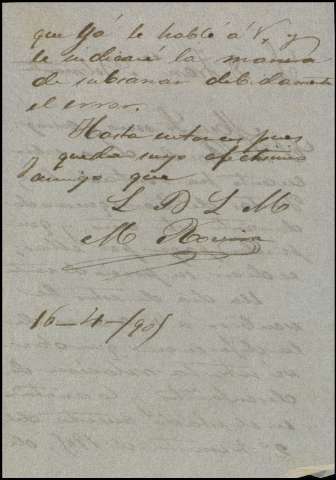 que yá le hablé á V, y
le indicaré la manera
de subsanar debidamente
el error.
Hasta entonces pues
queda suyo afectisimo
amigo que
L B L M
M
16-4-/905